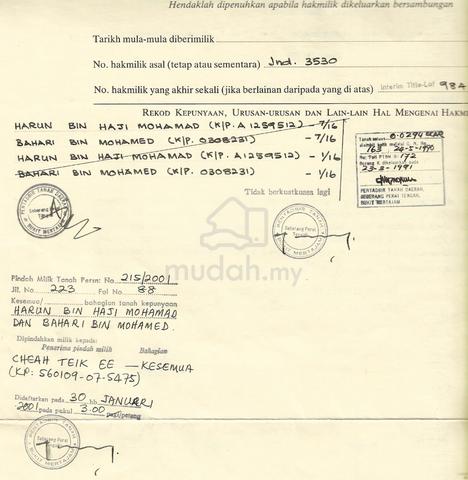 Hendaklah dipenuhkan apabila hakmilik dikeluarkan bersambungan
Tarikh mula-mula diberimilik
No. hakmilik asal (tetap atau sementara) Jnd. 3530
No. hakmilik yang akhir sekali (jika berlainan daripada yang di atas) Interim Title-Lot 984
REKOD KEPUNYAAN, URUSAN-URUSAN DAN LAIN-LAIN HAL MENGENAI HAKM
HARUN BIN HAJI MOHAMAD (K/P. A1259512) - 7/16
BAHARI BIN MOHAMED (K/P. 0308231) - 7/16
HARUN BIN HAJI MOHAMAD (K/P. A1259512) - 1/16
BAHARI BIN MOHAMED (K/P. 0308231) - 1/16
Tanah seluas 0.0294 EKAR
163 24-5-1990
172
23-3-1991
PENTADBIR TANAH DAERAH,
SEBERANG PERAI TENGAH,
BUKIT MERTAJAM
Tidak berkuatkuasa lagi
PENTADBIR TANAH
Seberang Perai
Tengah
BUKIT MERTAJAM
PENTADBIR TANAH
Seberang Perai
Tengah
BUKIT MERTAJAM
mudah.my
Pindah Milik Tanah Persn: No. 215/2001
Jil. No. 223 Fol No 88
Kesemua/ bahagian tanah kepunyaan
HARUN BIN HAJI MOHAMAD
DAN BAHARI BIN MOHAMED.
Dipindahkan milik kepada:
Penerima pindah milik Bahagian
CHEAH TEIK EE — KESEMUA
(KP: 560109-07-5475)
Didaftarkan pada 30 hb JANUARI
2001 pada pukul 3.00 pagi/petang
PENTADBIR TANAH
Seberang Perai
Tengah
BUKIT MERTAJAM